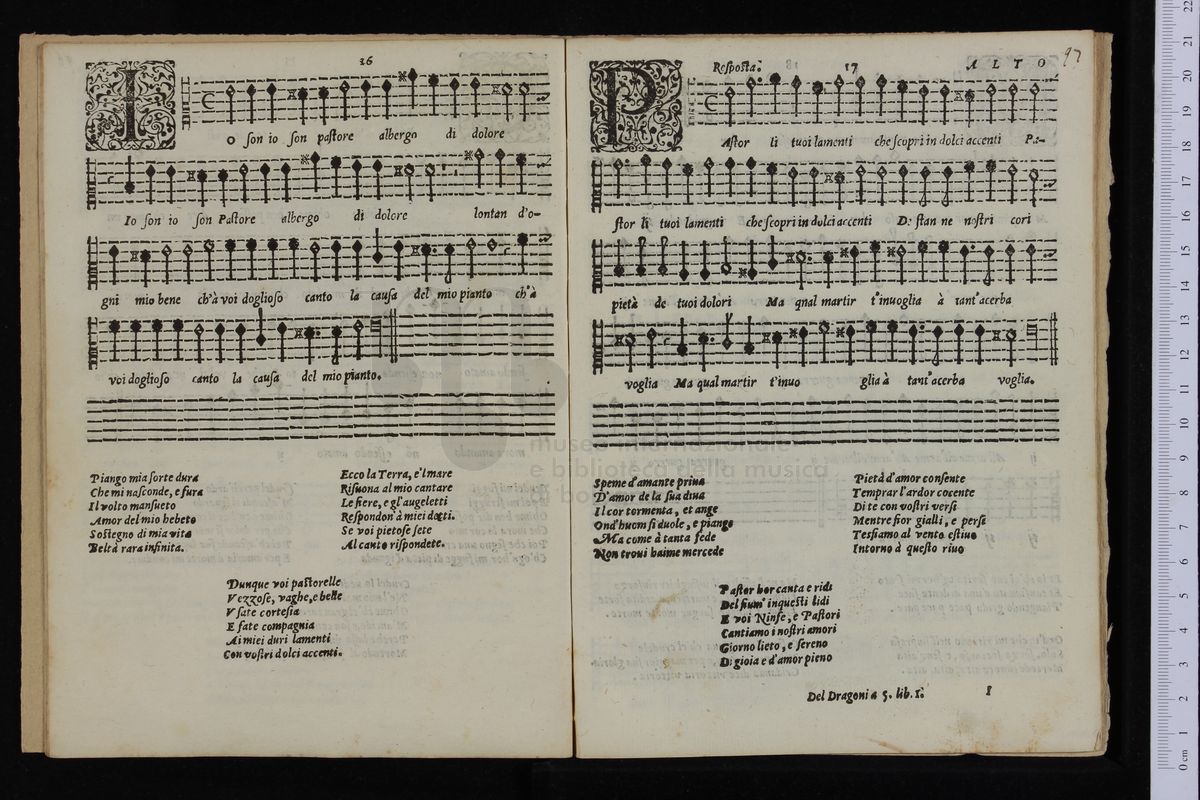 16
I
o son io son pastore albergo di dolore
Io son io son Pastore albergo di dolore lontan d'o-
gni mio bene ch'à voi doglioso canto la causa del mio pianto ch'à
voi doglioso canto la causa del mio pianto.
Piango mia sorte dura
Che mi nasconde, e fura
Il volto mansueto
Amor del mio hebeto
Sostegno di mia vita
Beltà rara infinita.
Ecco la Terra, e'l mare
Risuona al mio cantare
Le fiere, e gl'augeletti
Respondon à miei detti.
Se voi pietose sete
Al canto rispondete.
Dunque voi pastorelle
Vezzose, vaghe, e belle
Vsate cortesia
E fate compagnia
Ai miei duri lamenti
Con vostri dolci accenti.
Resposta. 17 ALTO 97
P
Astor li tuoi lamenti che scopri in dolci accenti Pa-
stor li tuoi lamenti che scopri in dulci accenti De stan ne nostri cori
pietà de tuoi dolori Ma qual martir t'inuoglia à tant'acerba
voglia Ma qual martir t'inuo glia à tant'acerba voglia.
Speme d'amante priua
D'amor de la sua diua
Il cor tormenta, et ange
Ond'huom si duole, e piange
Ma come à tanta fede
Non troui haime mercede
Pietà d'amor consente
Temprar l'ardor cocente
Di te con vostri versi
Mentre fior gialli, e persi
Tessiamo al vento estiuo
Intorno à questo riuo
Pastor hor canta e ridi
Del fium' in questi lidi
E voi Ninfe, e Pastori
Cantiamo i nostri amori
Giorno lieto, e sereno
Di gioia e d'amor pieno
Del Dragoni a 5. lib. I. I
museo internazionale
e biblioteca della musica
di bologna
22
21
20
19
18
17
16
15
14
13
12
11
10
9
8
7
6
5
4
3
2
1
0 cm